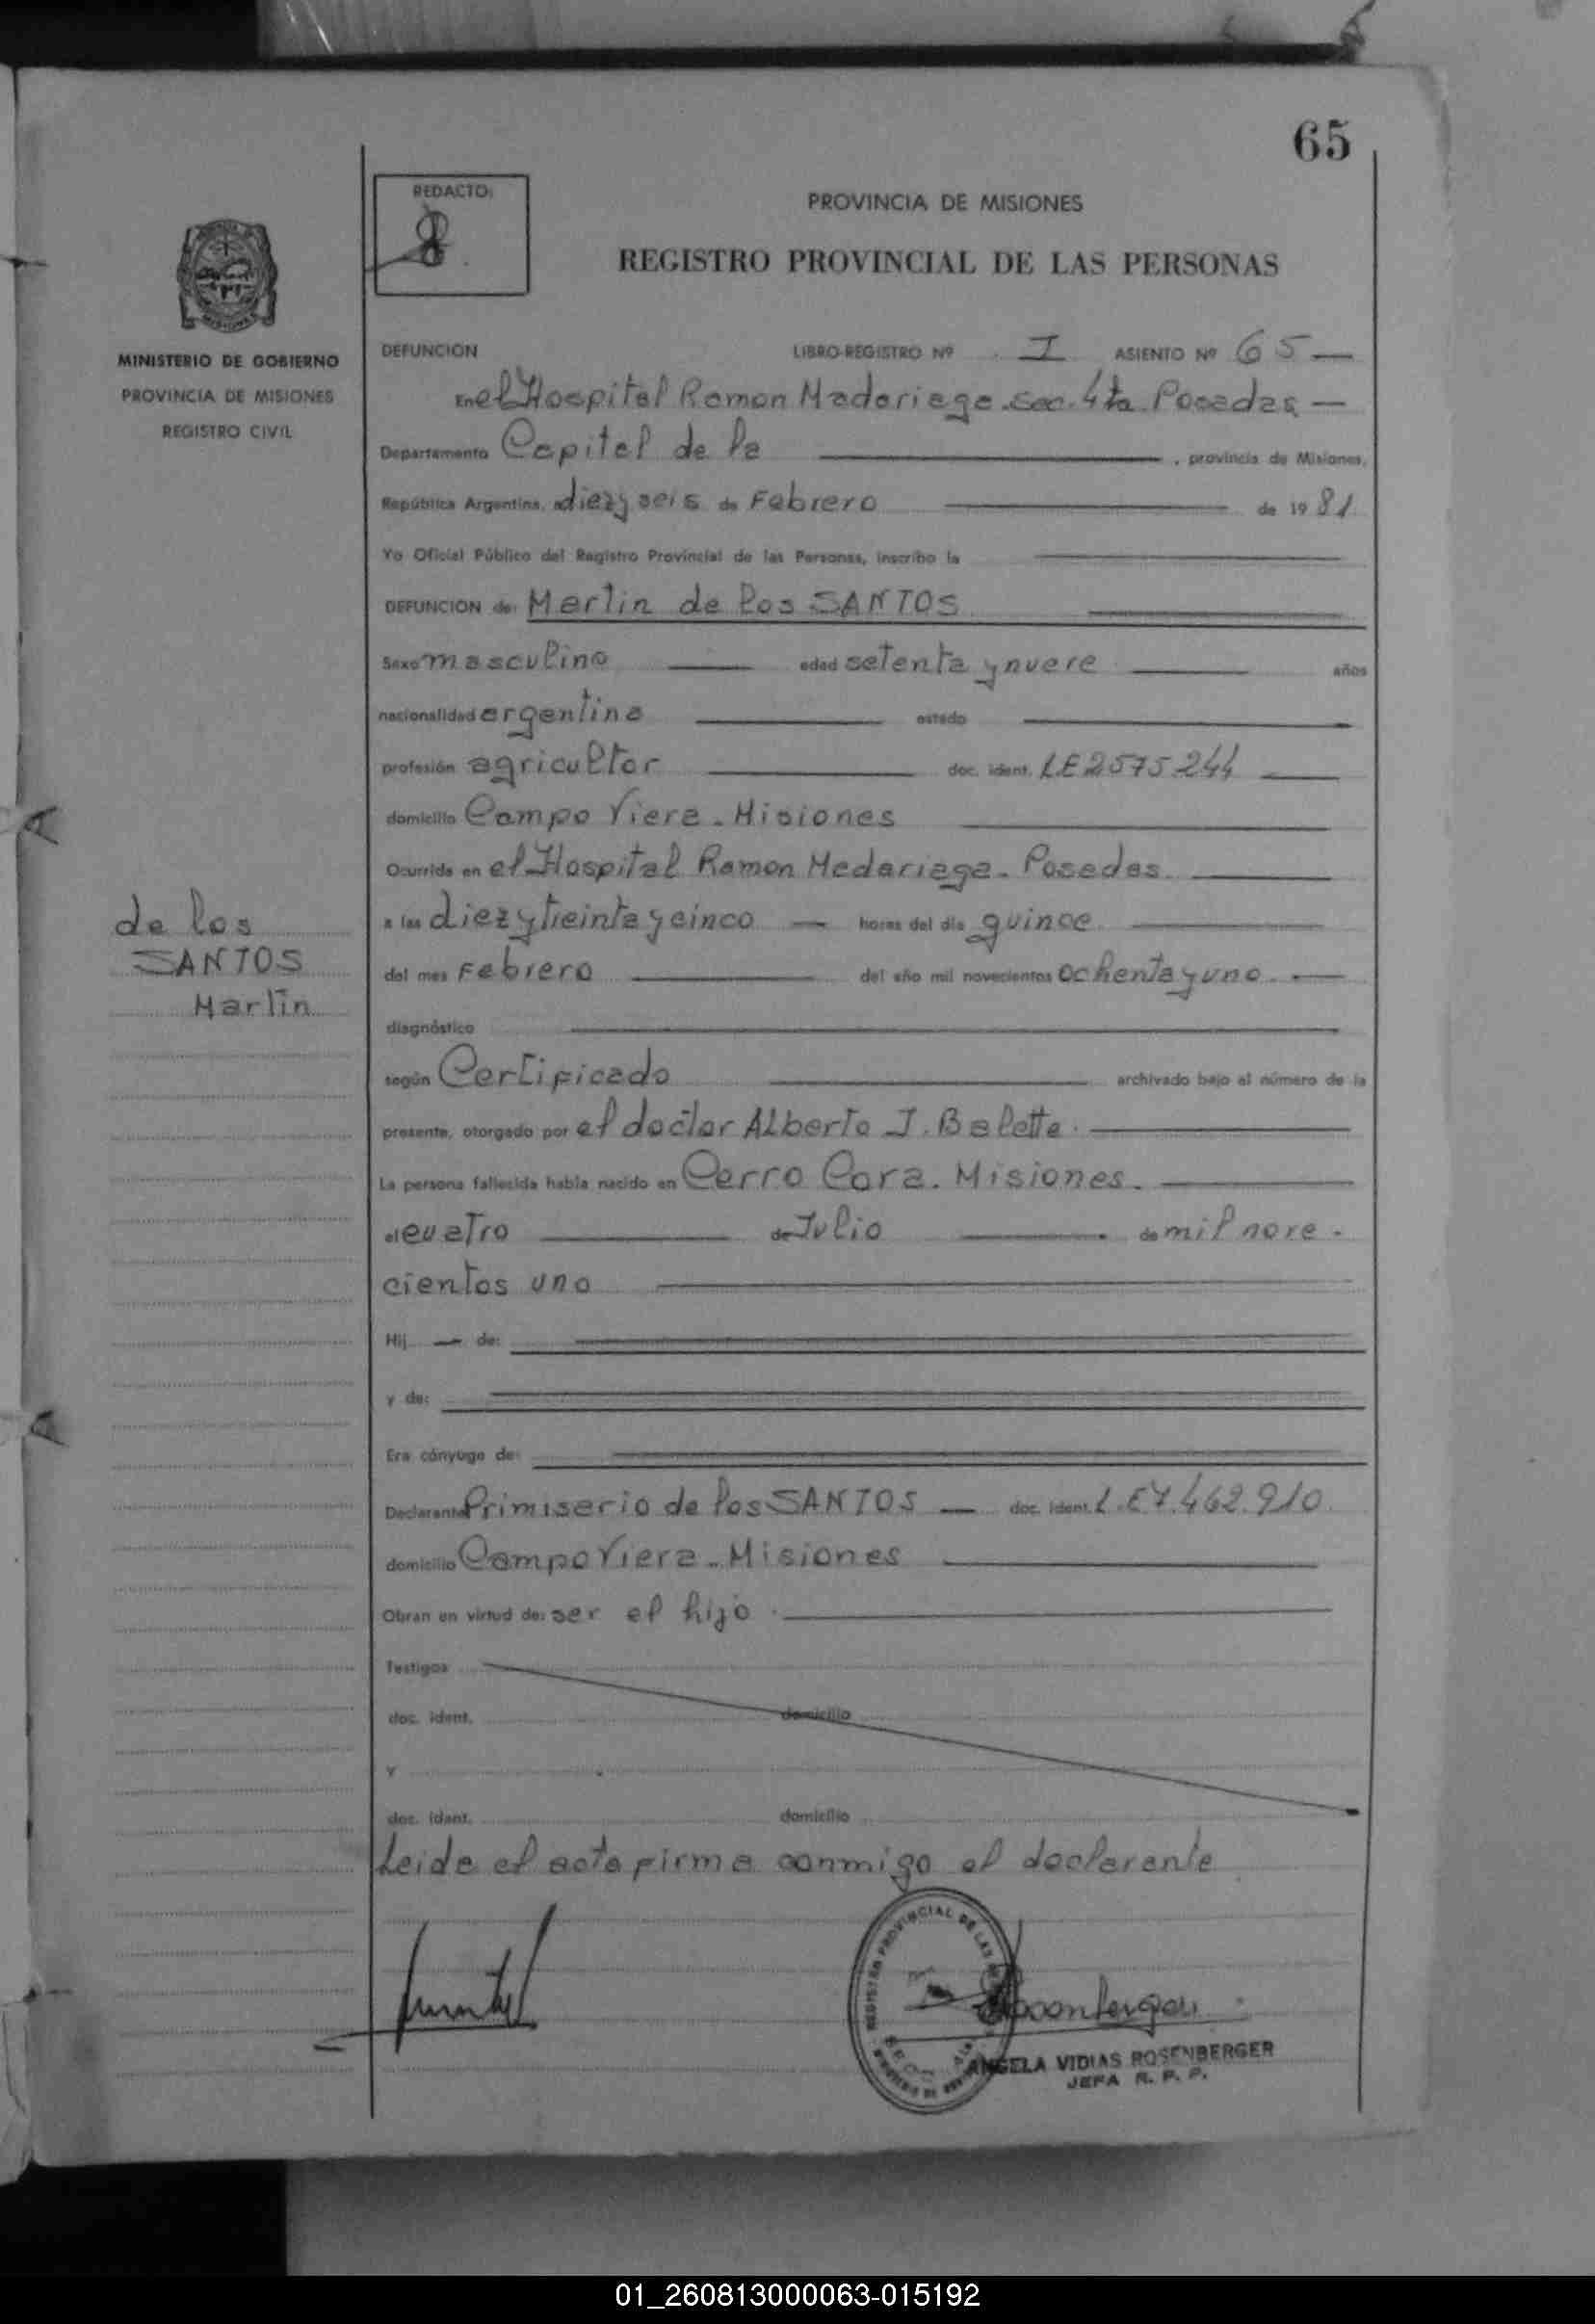 65
REDACTO:
PROVINCIA DE MISIONES
REGISTRO PROVINCIAL DE LAS PERSONAS
MINISTERIO DE GOBIERNO
PROVINCIA DE MISIONES
REGISTRO CIVIL
DEFUNCION LIBRO-REGISTRO Nº I ASIENTO Nº 65
En el Hospital Ramon Madariaga. sec. 4ta. Posadas
Departamento Capital de la , provincia de Misiones,
República Argentina, a diez y seis de Febrero de 1981
Yo Oficial Público del Registro Provincial de las Personas, inscribo la
DEFUNCION de: Martin de los SANTOS
Sexo masculino edad setenta y nueve años
nacionalidad argentina estado
profesión agricultor doc. ident. LE 2575244
domicilio Campo Viera. Misiones
Ocurrida en el Hospital Ramon Madariaga. Posadas
a las diez y treinta y cinco horas del día quince
del mes Febrero del año mil novecientos ochenta y uno
diagnóstico
según Certificado archivado bajo el número de la
presente, otorgado por el doctor Alberto J. Balette.
La persona fallecida había nacido en Cerro Cora. Misiones.
el cuatro de Julio de mil nove-
cientos uno
Hij de:
y de:
Era cónyuge de:
Declarante Primiserio de los SANTOS doc. ident. L.E 7.462.910
domicilio Campo Viera. Misiones
Obran en virtud de: ser el hijo.
Testigos
doc. ident. domicilio
y
doc. ident. domicilio
Leida el acta firma conmigo el declarante
de los
SANTOS
Martin
ANGELA VIDIAS ROSENBERGER
JEFA R. P. P.
01_260813000063-015192